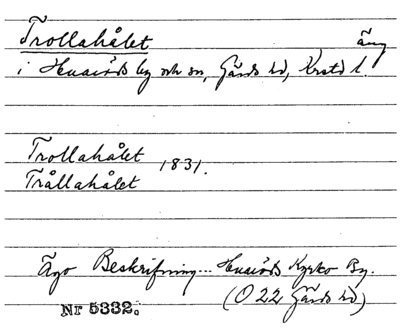 Trollahålet äng
i Huaröds by och sn, Gärds hd, Krstds l.
Trollahålet
1831.
Trållahålet
Ägo Beskrifning... Huaröds Kyrko By.
(O 22 Gärds hd)
Nr 5332.